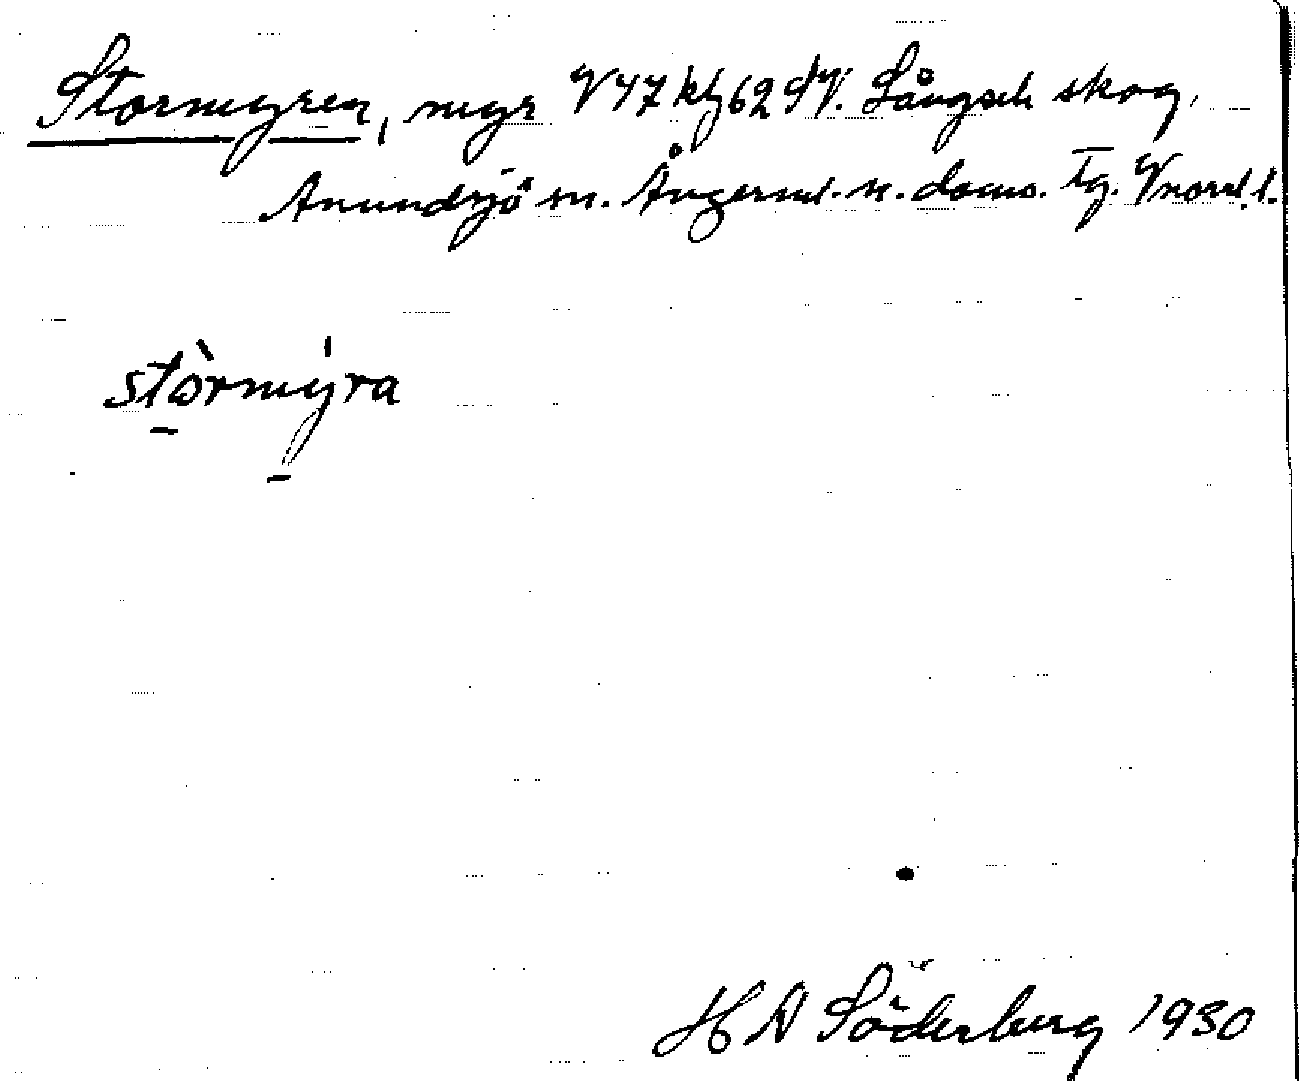 Stormyren, myr V47 kbl 62 SV. Långsele skog,
Anundsjö sn. Ångerml. n. doms. Tg. Vnorrl. l.
stòrmýra
H D Söderberg 1930